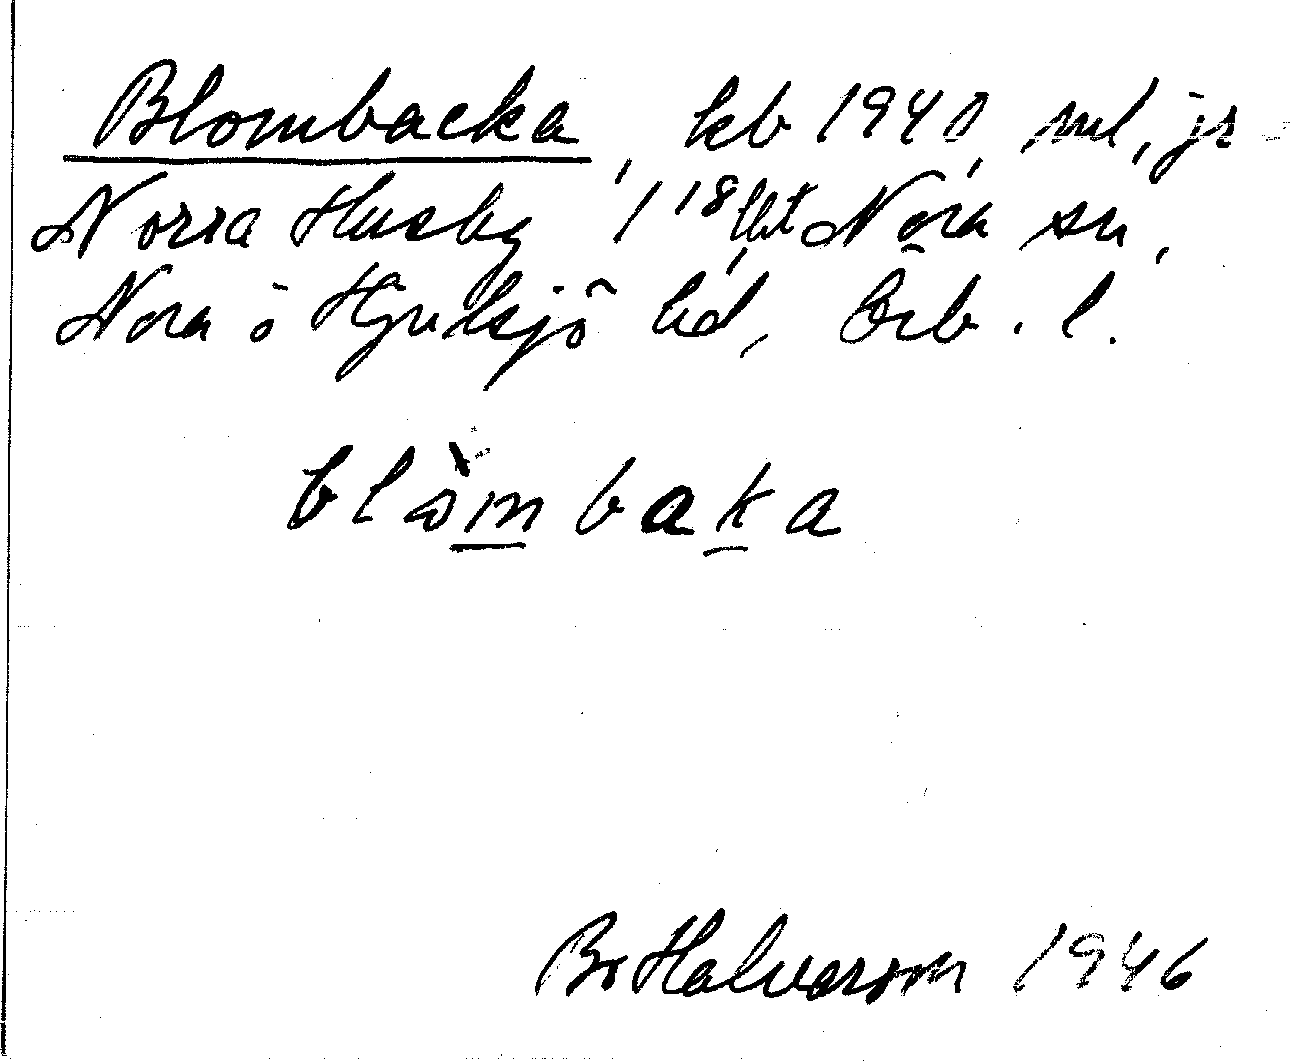 Blombacka, kb 1940, ml, js
Norra Husby 1¹⁸, Nora sn,
Nora o Hjulsjö hd, Örb. l.
blòmbaka
Bo Halvarson 1946